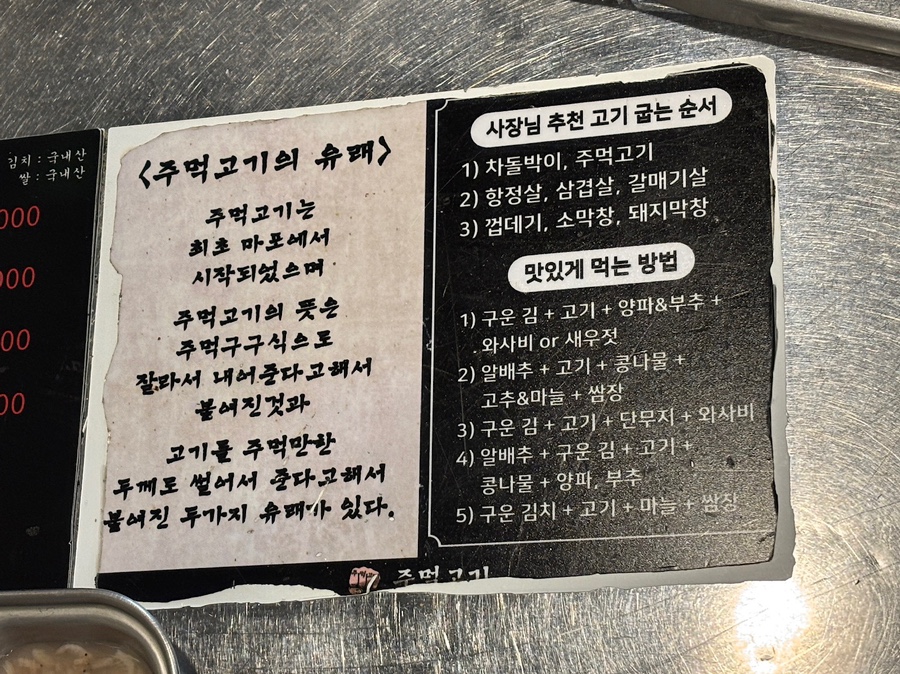 김치 : 국내산
쌀 : 국내산
000
000
00
00
<주먹고기의 유래>
주먹고기는
최초 마포에서
시작되었으며
주먹고기의 뜻은
주먹구구식으로
잘라서 내어준다고해서
붙여진것과
고기를 주먹만한
두께로 썰어서 준다고해서
붙여진 두가지 유래가 있다.
사장님 추천 고기 굽는 순서
1) 차돌박이, 주먹고기
2) 항정살, 삼겹살, 갈매기살
3) 껍데기, 소막창, 돼지막창
맛있게 먹는 방법
1) 구운 김 + 고기 + 양파&부추 +
와사비 or 새우젓
2) 알배추 + 고기 + 콩나물 +
고추&마늘 + 쌈장
3) 구운 김 + 고기 + 단무지 + 와사비
4) 알배추 + 구운 김 + 고기 +
콩나물 + 양파, 부추
5) 구운 김치 + 고기 + 마늘 + 쌈장
주먹고기